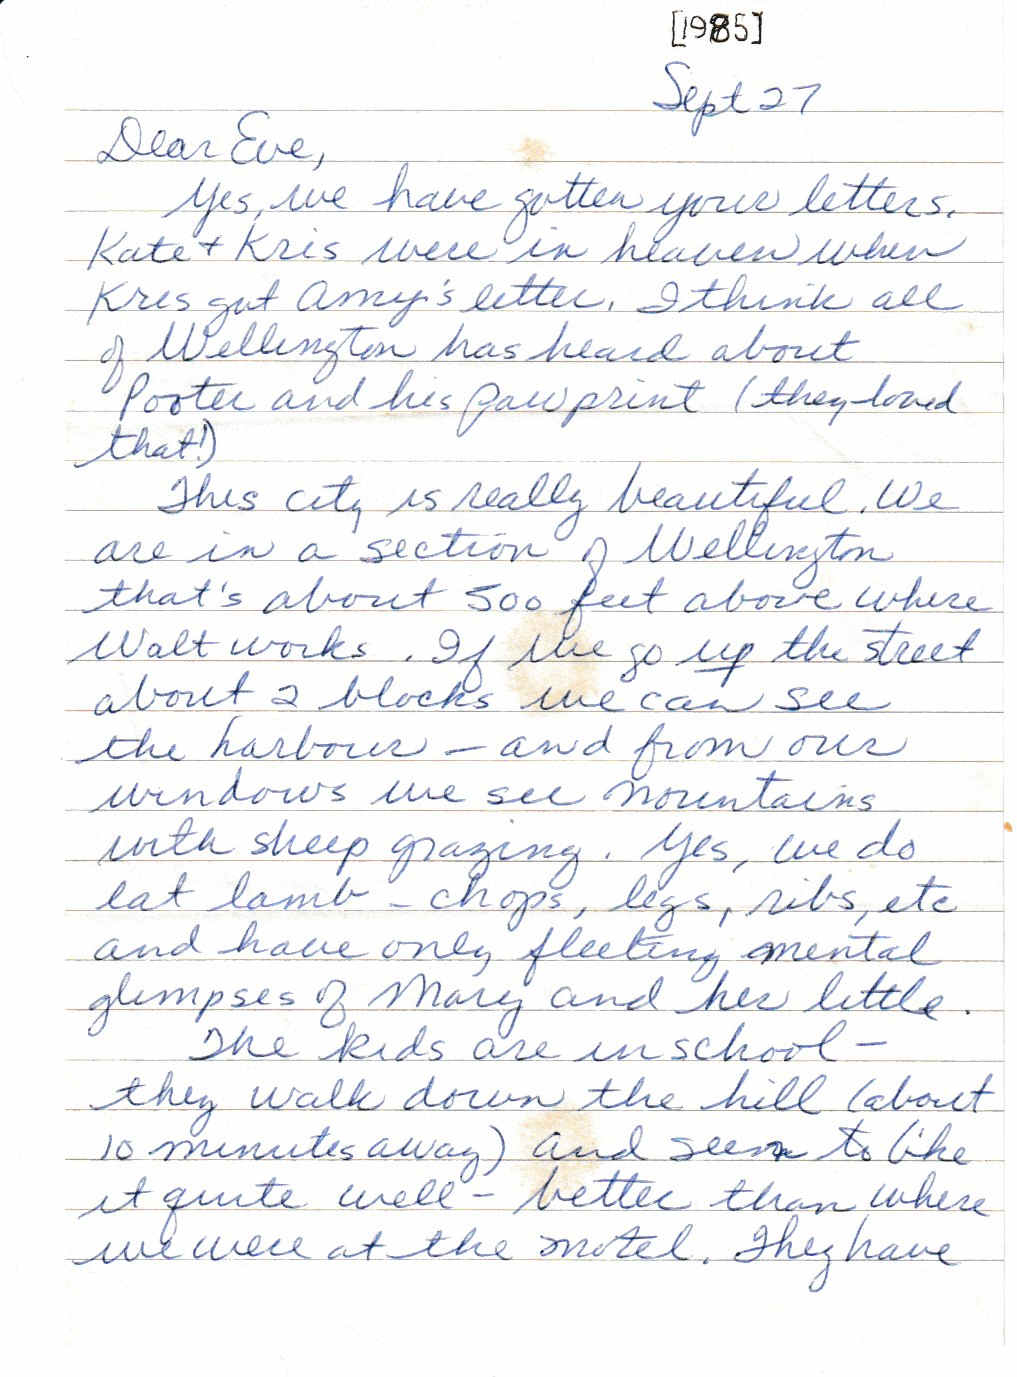 [1985]
Sept 27
Dear Eve,
Yes, we have gotten your letters.
Kate + Kris were in heaven when
Kris got Amy's letter. I think all
of Wellington has heard about
Pooter and his pawprint (they loved
that!)
This city is really beautiful. We
are in a section of Wellington
that's about 500 feet above where
Walt works. If we go up the street
about 2 blocks we can see
the harbour - and from our
windows we see mountains
with sheep grazing. Yes, we do
eat lamb - chops, legs, ribs, etc
and have only fleeting mental
glimpses of Mary and her little.
The kids are in school -
they walk down the hill (about
10 minutes away) and seem to like
it quite well - better than where
we were at the motel. They have